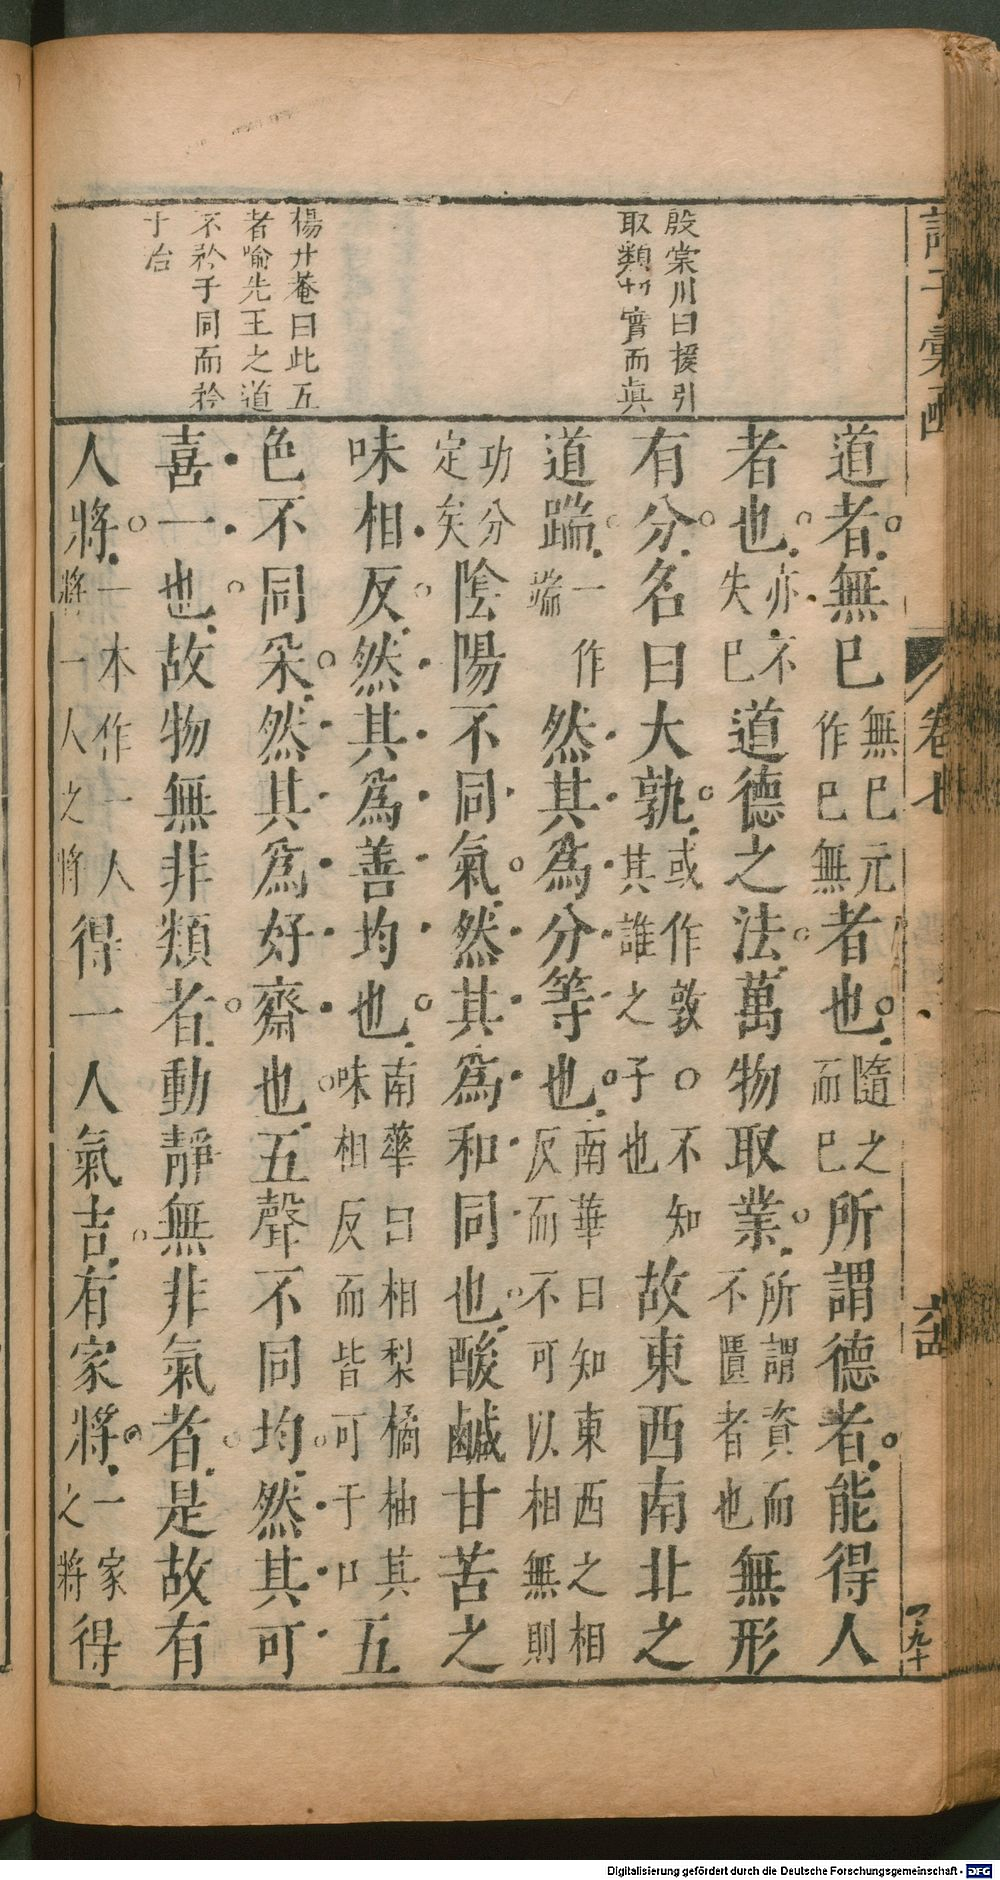 殷棠川曰援引
取類 實而眞
楊升菴曰此五
者喻先王之道
不衿于同而衿
于治
道者無已無已元作已無者也隨之而已所謂德者能得人
者也亦不失已道德之法萬物取業所謂資而不匱者也無形
有分名曰大孰或作敦○不知其誰之子也故東西南北之
道踹一作端然其爲分等也南華曰知東西之相反而不可以相無則
功分定矣陰陽不同氣然其爲和同也酸鹹甘苦之
味相反然其爲善均也南華曰相梨橘柚其味相反而皆可于口五
色不同釆然其爲好齋也五聲不同均然其可
喜一也故物無非類者動靜無非氣者是故有
人將一本作一人將一人之將得一人氣吉有家將一家之將得
卷七
Digitalisierung gefördert durch die Deutsche Forschungsgemeinschaft - DFG